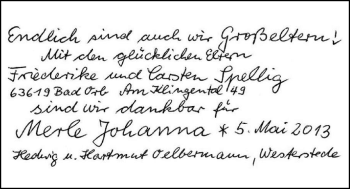 Endlich sind auch wir Großeltern!
Mit den glücklichen Eltern
Friederike und Carsten Spellig
63619 Bad Orb Am Klingental 49
sind wir dankbar für
Merle Johanna * 5. Mai 2013
Hedwig u. Hartmut Oelbermann, Westerstede